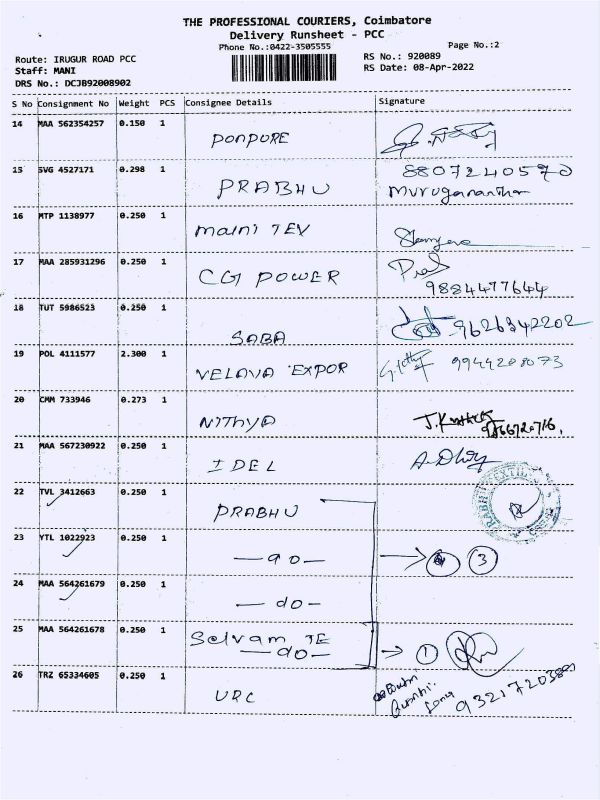 THE PROFESSIONAL COURIERS, Coimbatore
Delivery Runsheet - PCC
Phone No.:0422-3505555 Page No.:2
Route: IRUGUR ROAD PCC RS No.: 920089
Staff: MANI RS Date: 08-Apr-2022
DRS No.: DCJB92008902
S No Consignment No Weight PCS Consignee Details Signature
14 MAA 562354257 0.150 1 PONPURE
15 SVG 4527171 0.298 1 PRABHU 8807240570
Murugananthan
16 MTP 1138977 0.250 1 maini TEX
17 MAA 285931296 0.250 1 CG POWER
9884477644
18 TUT 5986523 0.250 1 SABA 9626342202
19 POL 4111577 2.300 1 VELAVA EXPOR 9944208073
20 CMM 733946 0.273 1 NITHYA
21 MAA 567230922 0.250 1 IDEL
22 TVL 3412663 0.250 1 PRABHU
23 YTL 1022923 0.250 1 —do— 3
24 MAA 564261679 0.250 1 —do—
25 MAA 564261678 0.250 1 Selvam TE
—do— 1
26 TRZ 65334605 0.250 1 URC